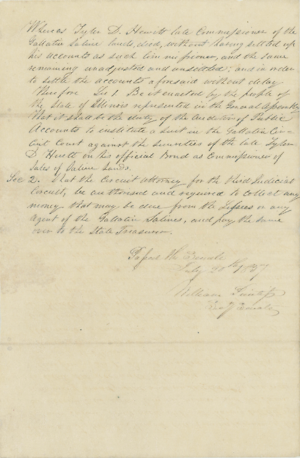 Whereas Tyler D. Hewitt late Commissioner of the
Gallatin Saline lands, died, without having settled up
his accounts as such Commissioner, and the same
remaining unadjusted and unsettled; and in order
to settle the accounts aforesaid without delay
Therefore Sec 1 Be it enacted by the people of
the State of Illinois represented in the General Assembly
That it shall be the duty of the Auditor of Public
Accounts to institute a suit in the Gallatin Cir-
cuit Court against the securities of the late Tyler
D. Hewitt on his official bond as Commissioner of
Sales of Saline lands.
Sec 2. That the Circuit attorney for the third Judicial
Circuit, be authorized and required to collect any
money that may be due from the Lessees or any
Agent of the Gallatin Salines, and pay the same
over to the State Treasurer.
Passed the Senate
July 20th 1837
William
Secy Senate